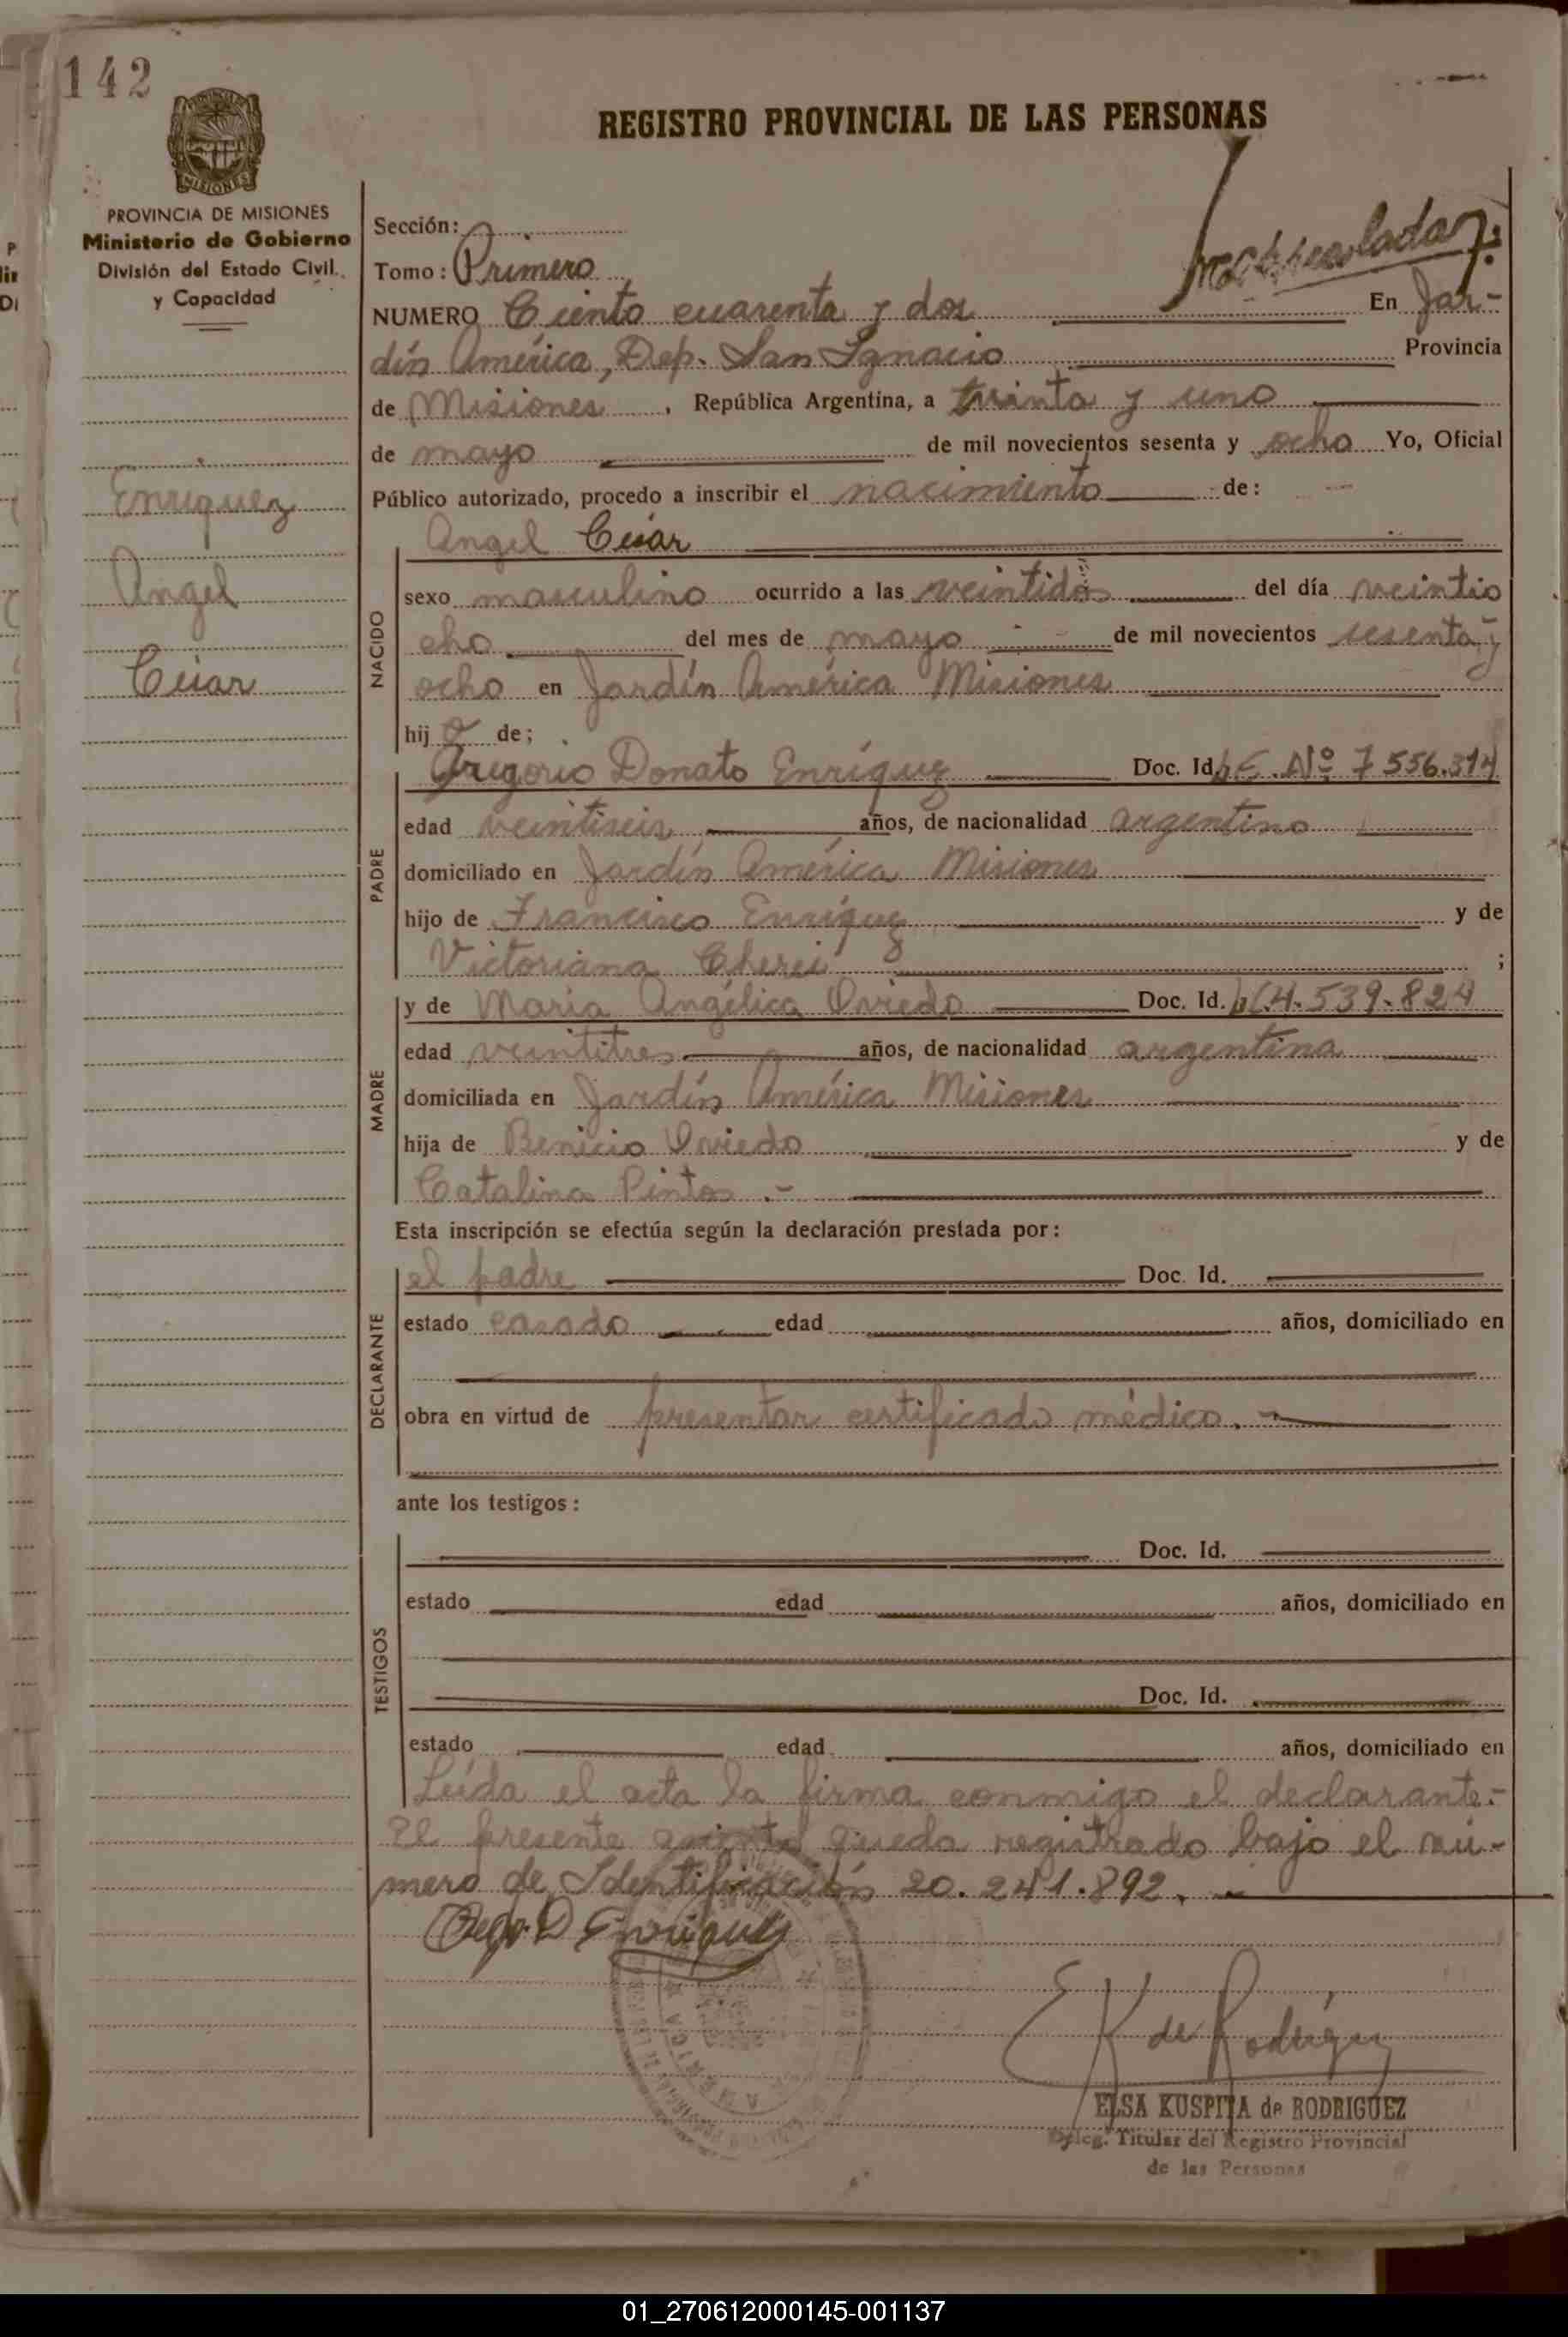 142
REGISTRO PROVINCIAL DE LAS PERSONAS
MISIONES
PROVINCIA DE MISIONES
Ministerio de Gobierno
División del Estado Civil
y Capacidad
Enriquez
Angel
César
Sección:
Tomo: Primero
NUMERO Ciento cuarenta y dos En Jar-
dín América, Dep. San Ignacio Provincia
de Misiones, República Argentina, a treinta y uno
de mayo de mil novecientos sesenta y ocho Yo, Oficial
Público autorizado, procedo a inscribir el nacimiento de:
Angel César
NACIDO
sexo masculino ocurrido a las veintidós del día veintio
cho del mes de mayo de mil novecientos sesenta y
ocho en Jardín América Misiones
hij o de;
PADRE
Gregorio Donato Enríquez Doc. Id. L.E. Nº 7556.314
edad veintiseis años, de nacionalidad argentino
domiciliado en Jardín América Misiones
hijo de Francisco Enríquez y de
Victoriana ;
MADRE
y de María Angélica Oviedo Doc. Id. 4.539.824
edad veintitres años, de nacionalidad argentina
domiciliada en Jardín América Misiones
hija de Benicio Oviedo y de
Catalina Pintos .-
Esta inscripción se efectúa según la declaración prestada por:
DECLARANTE
el padre Doc. Id.
estado casado edad años, domiciliado en
obra en virtud de presentar certificado médico. -
ante los testigos:
TESTIGOS
Doc. Id.
estado edad años, domiciliado en
Doc. Id.
estado edad años, domiciliado en
Leída el acta la firma conmigo el declarante.-
El presente asiento queda registrado bajo el nú-
mero de Identificación 20.241.892. -
Greg. D Enriquez
E K de Rodríguez
ELSA KUSPITA de RODRIGUEZ
Deleg. Titular del Registro Provincial
de las Personas
01_270612000145-001137